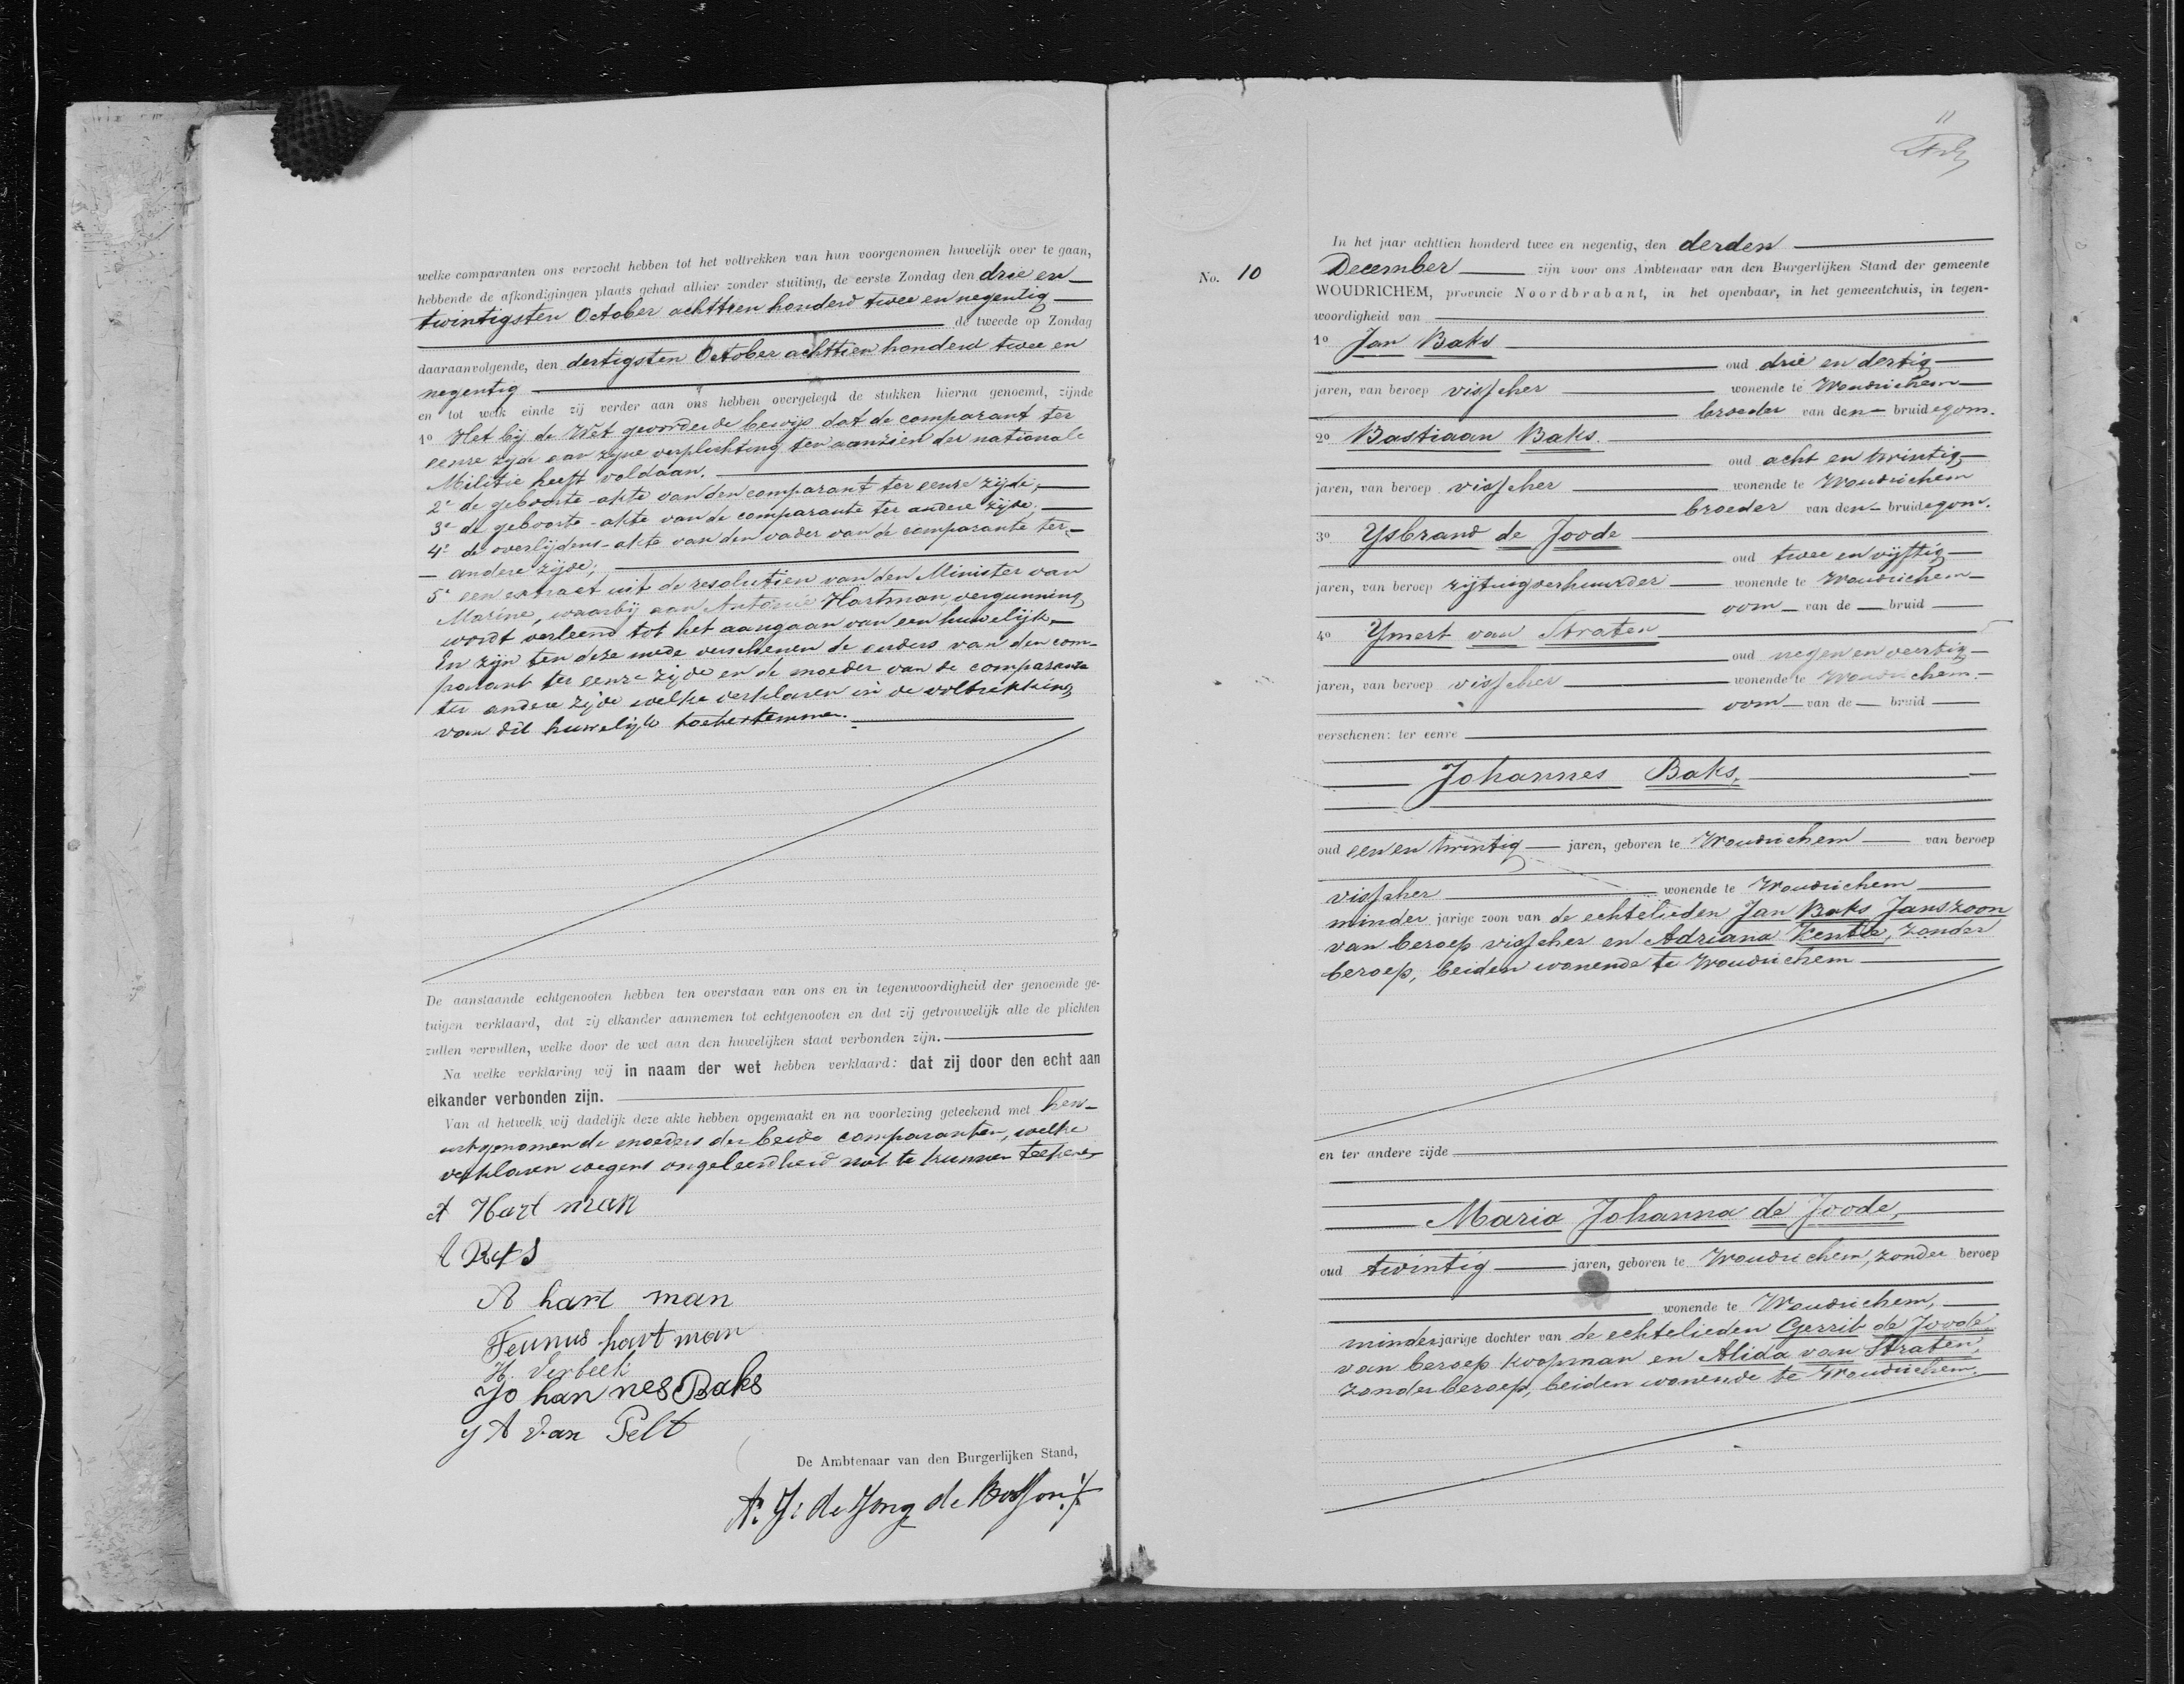 welke comparanten ons verzocht hebben tot het voltrekken van hun voorgenomen huwelijk over te gaan,
hebbende de afkondigingen plaats gehad alhier zonder stuiting, de eerste Zondag den drie en
twintigsten October achttien honderd twee en negentig
de tweede op Zondag
daaraanvolgende, den dertigsten October achttien honderd twee en
negentig
en tot welk einde zij verder aan ons hebben overgelegd de stukken hierna genoemd, zijnde
1o Het bij de Wet gevorderde bewijs dat de comparant ter
eenre zijde aan zijne verplichting ten aanzien der nationale
Militie heeft voldaan.
2e de geboorte-akte van den comparant ter eenre zijde;
3e de geboorte-akte van de comparante ter andere zijde;
4e de overlijdens-akte van den vader van de comparante ter
andere zijde;
5e een extract uit de resolutien van den Minister van
Marine, waarbij aan Antonie Hartman, vergunning
wordt verleend tot het aangaan van een huwelijk.
En zijn ten deze mede verschenen de ouders van den com-
parant ter eenre zijde en de moeder van de comparante
ter andere zijde welke verklaren in de voltrekking
van dit huwelijk toetestemmen.
De aanstaande echtgenooten hebben ten overstaan van ons en in tegenwoordigheid der genoemde ge-
tuigen verklaard, dat zij elkander aannemen tot echtgenooten en dat zij getrouwelijk alle de plichten
zullen vervullen, welke door de wet aan den huwelijken staat verbonden zijn.
Na welke verklaring wij in naam der wet hebben verklaard: dat zij door den echt aan
elkander verbonden zijn.
Van al hetwelk wij dadelijk deze akte hebben opgemaakt en na voorlezing geteekend met hen
uitgenomen de moeders der beide comparanten, welke
verklaren wegens ongeleerdheid niet te kunnen teekenen
A Hart man
A hart man
Teunus hart man
H. Verbeek
Jo han nes Baks
J A van Pelt
De Ambtenaar van den Burgerlijken Stand,
11
No. 10
In het jaar achttien honderd twee en negentig, den derden
December zijn voor ons Ambtenaar van den Burgerlijken Stand der gemeente
WOUDRICHEM, provincie Noordbrabant, in het openbaar, in het gemeentehuis, in tegen-
woordigheid van
1o Jan Baks
oud drie en dertig
jaren, van beroep visscher wonende te Woudrichem
broeder van den bruidegom.
2o Bastiaan Baks.
oud acht en twintig
jaren, van beroep visscher wonende te Woudrichem
broeder van den bruidegom.
3o Ysbrand de Joode
oud twee en vijftig
jaren, van beroep rijtuigverhuurder wonende te Woudrichem
oom van de bruid
4o Ymert van Straten
oud negen en veertig
jaren, van beroep visscher wonende te Woudrichem.
oom van de bruid
verschenen: ter eenre
Johannes Baks,
oud een en twintig jaren, geboren te Woudrichem van beroep
visscher wonende te Woudrichem
minder jarige zoon van de echtelieden Jan Baks Janszoon
van beroep visscher en Adriana Kentie, zonder
beroep, beiden wonende te Woudrichem
en ter andere zijde
Maria Johanna de Joode,
oud twintig jaren, geboren te Woudrichem, zonder beroep
wonende te Woudrichem,
minderjarige dochter van de echtelieden Gerrit de Joode,
van beroep koopman en Alida van Straten,
zonder beroep, beiden wonende te Woudrichem.